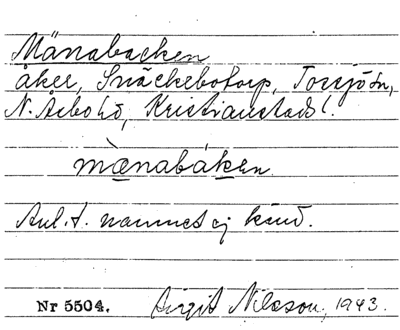 Mänabacken
åker, Snäckebotorp, Torsjö sn,
N. Åsbo hd, Kristianstads l.
mänabáken.
Anl. t. namnet ej känd.
Nr 5504. Birgit Nilsson, 1943.